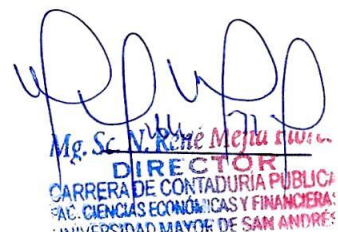 Mg. Sc. N. René Mejia
DIRECTOR
CARRERA DE CONTADURÍA PÚBLICA
FAC. CIENCIAS ECONÓMICAS Y FINANCIERAS
UNIVERSIDAD MAYOR DE SAN ANDRÉS